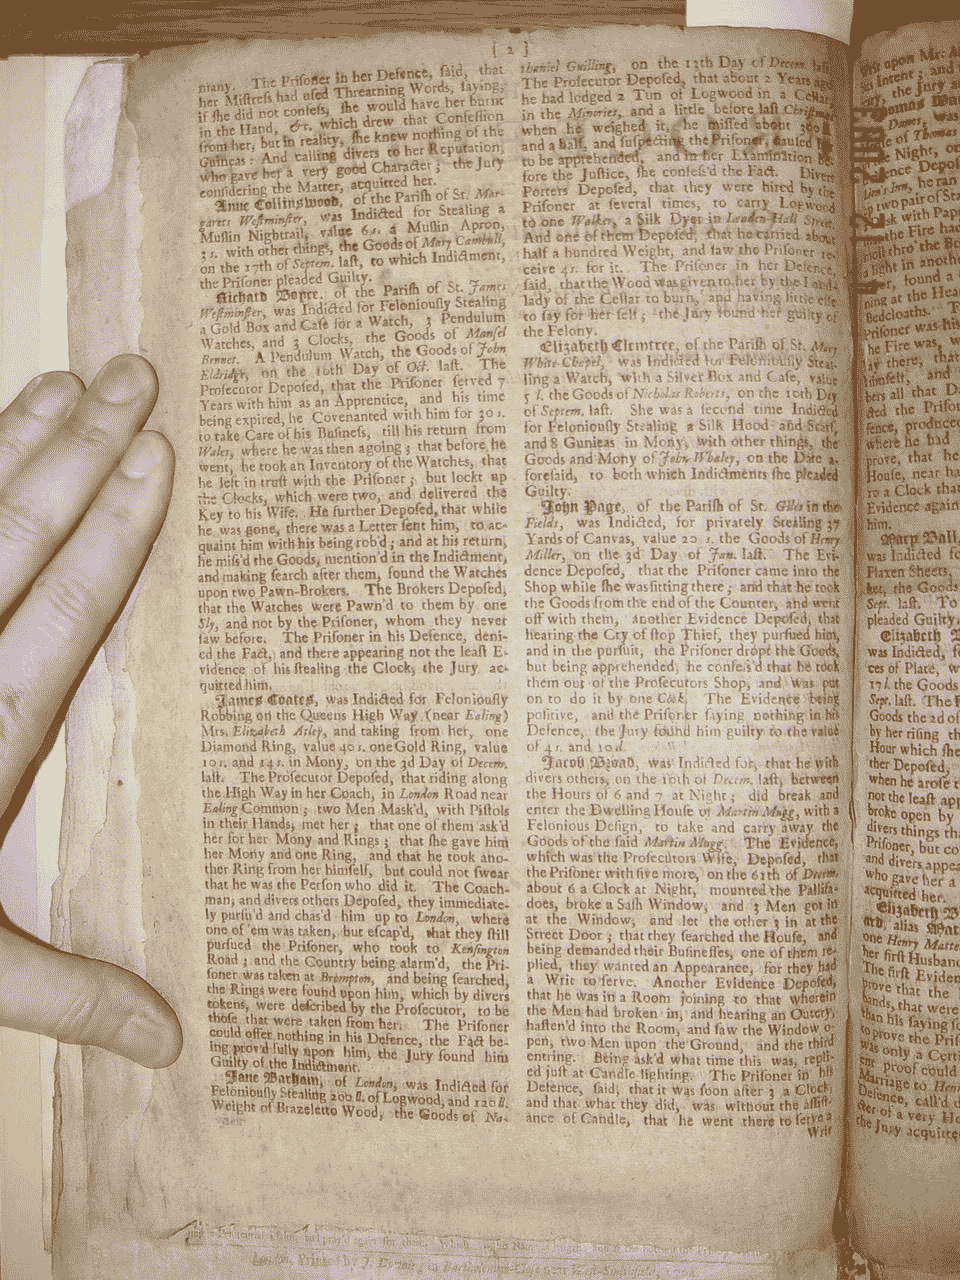 [ 2 ]
many. The Prisoner in her Defence, said, that
her Mistress had used Threatning Words, saying,
if she did not confess, she would have her burnt
in the Hand, &c. which drew that Confession
from her, but in reality, she knew nothing of the
Guineas: And calling divers to her Reputation,
who gave her a very good Character; the Jury
considering the Matter, acquitted her.
Anne Collingwood, of the Parish of St. Mar-
garets Westminster, was Indicted for Stealing a
Muslin Nightrail, value 6 s. a Muslin Apron,
3 s. with other things, the Goods of Mary Camball,
on the 17th of Septem. last, to which Indictment,
the Prisoner pleaded Guilty.
Richard Boyce, of the Parish of St. James
Westminster, was Indicted for Feloniously Stealing
a Gold Box and Case for a Watch, 3 Pendulum
Watches, and 3 Clocks, the Goods of Mansel
Bennet. A Pendulum Watch, the Goods of John
Eldridge, on the 16th Day of Oct. last. The
Prosecutor Deposed, that the Prisoner served 7
Years with him as an Apprentice, and his time
being expired, he Covenanted with him for 30 s.
to take Care of his Business, till his return from
Wales, where he was then agoing; that before he
went, he took an Inventory of the Watches, that
he left in trust with the Prisoner; but lockt up
the Clocks, which were two, and delivered the
Key to his Wife. He further Deposed, that while
he was gone, there was a Letter sent him, to ac-
quaint him with his being rob'd; and at his return,
he miss'd the Goods, mention'd in the Indictment,
and making search after them, found the Watches
upon two Pawn-Brokers. The Brokers Deposed,
that the Watches were Pawn'd to them by one
Sly, and not by the Prisoner, whom they never
saw before. The Prisoner in his Defence, deni-
ed the Fact, and there appearing not the least E-
vidence of his stealing the Clock, the Jury ac-
quitted him.
James Coates, was Indicted for Feloniously
Robbing on the Queens High Way (near Ealing)
Mrs. Elizabeth Atley, and taking from her, one
Diamond Ring, value 40 s. one Gold Ring, value
10 s. and 14 s. in Mony, on the 3d Day of Decem.
last. The Prosecutor Deposed, that riding along
the High Way in her Coach, in London Road near
Ealing Common; two Men Mask'd, with Pistols
in their Hands, met her; that one of them ask'd
her for her Mony and Rings; that she gave him
her Mony and one Ring, and that he took ano-
ther Ring from her himself, but could not swear
that he was the Person who did it. The Coach-
man, and divers others Deposed, they immediate-
ly pursu'd and chas'd him up to London, where
one of 'em was taken, but escap'd, that they still
pursued the Prisoner, who took to Kensington
Road; and the Country being alarm'd, the Pri-
soner was taken at Brompton, and being searched,
the Rings were found upon him, which by divers
tokens, were described by the Prosecutor, to be
those that were taken from her. The Prisoner
could offer nothing in his Defence, the Fact be-
ing prov'd fully upon him, the Jury found him
Guilty of the Indictment.
Jane Barham, of London, was Indicted for
Feloniously Stealing 200 ll. of Logwood, and 120 ll.
Weight of Brazeletto Wood, the Goods of Na-
thaniel Guilling, on the 12th Day of Decem last.
The Prosecutor Deposed, that about 2 Years ago
he had lodged 2 Tun of Logwood in a Cellar
in the Minories, and a little before last Christmas
when he weighed it, he missed about
and a half, and suspecting the Prisoner, caused
to be apprehended, and in her Examination be-
fore the Justice, she confess'd the Fact. Divers
Porters Deposed, that they were hired by the
Prisoner at several times, to carry Logwood
to one Walker, a Silk Dyer in Leaden-Hall Street.
And one of them Deposed, that he carried about
half a hundred Weight, and saw the Prisoner re-
ceive 4 s. for it. The Prisoner in her Defence,
said, that the Wood was given to her by the Land-
lady of the Cellar to burn, and having little else
to say for her self; the Jury found her guilty of
the Felony.
Elizabeth Clemtree, of the Parish of St. Mary
White-Chapel, was Indicted for Feloniously Stea-
ling a Watch, with a Silver Box and Case, value
5 l. the Goods of Nicholas Roberts, on the 10th Day
of Septem. last. She was a second time Indicted
for Feloniously Stealing a Silk Hood and Scarf,
and 8 Gunieas in Mony, with other things, the
Goods and Mony of John Whaley, on the Date a-
foresaid, to both which Indictments she pleaded
Guilty.
John Page, of the Parish of St. Giles in the
Fields, was Indicted, for privately Stealing 37
Yards of Canvas, value 20 s. the Goods of Henry
Miller, on the 3d Day of Jan. last. The Evi-
dence Deposed, that the Prisoner came into the
Shop while she was sitting there; and that he took
the Goods from the end of the Counter, and went
off with them, another Evidence Deposed, that
hearing the Cry of stop Thief, they pursued him,
and in the pursuit, the Prisoner dropt the Goods,
but being apprehended, he confess'd that he took
them out of the Prosecutors Shop, and was put
on to do it by one Cook. The Evidence being
positive, and the Prisoner saying nothing in his
Defence, the Jury found him guilty to the value
of 4 s. and 10 d.
Jacob Broad, was Indicted for, that he with
divers others, on the 10th of Decem. last, between
the Hours of 6 and 7 at Night; did break and
enter the Dwelling House of Martin Mugg, with a
Felonious Design, to take and carry away the
Goods of the said Martin Mugg. The Evidence,
which was the Prosecutors Wife, Deposed, that
the Prisoner with five more, on the 61th of Decem.
about 6 a Clock at Night, mounted the Pallisa-
does, broke a Sash Window, and 3 Men got in
at the Window, and let the other 3 in at the
Street Door; that they searched the House, and
being demanded their Businesses, one of them re-
plied, they wanted an Appearance, for they had
a Writ to serve. Another Evidence Deposed,
that he was in a Room joining to that wherein
the Men had broken in, and hearing an Outcry,
hasten'd into the Room, and saw the Window o-
pen, two Men upon the Ground, and the third
entring. Being ask'd what time this was, repli-
ed just at Candle lighting. The Prisoner in his
Defence, said, that it was soon after 3 a Clock,
and that what they did, was without the assist-
ance of Candle, that he went there to serve a
Writ
London, Printed by J. Downing in Bartholomew-Close near West-Smithfield,
upon Mr.
Intent; and
the Jury a
Thomas
Dames, was
of Thomas
Night, on
Deposed
Lion's Inn, he ran
two pair of Sta
with Pap
the Fire had
thro the Bo
light in anoth
found a
ning at the Hea
Bedcloaths.
Prisoner was his
he Fire was, w
lay there, that
himself, and
bers all that D
the Prison
fence, produced
where he had
prove, that he
House, near ha
to a Clock that
Evidence again
him.
Mary Ball,
was Indicted fo
Flaxen Sheets,
ket, the Goods
Sept. last. To
pleaded Guilty.
Elizabeth
was Indicted, f
ces of Plate, w
17 l. the Goods
Sept. last. The P
Goods the 2d of
by her rising th
Hour which she
ther Deposed,
when he arose t
not the least app
broke open by
divers things tha
Prisoner, but co
and divers appea
who gave her a
acquitted her.
Elizabeth
alias
one Henry Matte
her first Husband
The first Eviden
prove that the
bands, that were
than his saying so
to prove the Pris
was only a Certi
proof could
Marriage to Henr
Defence, call'd d
cter of a very Ho
the Jury acquitte